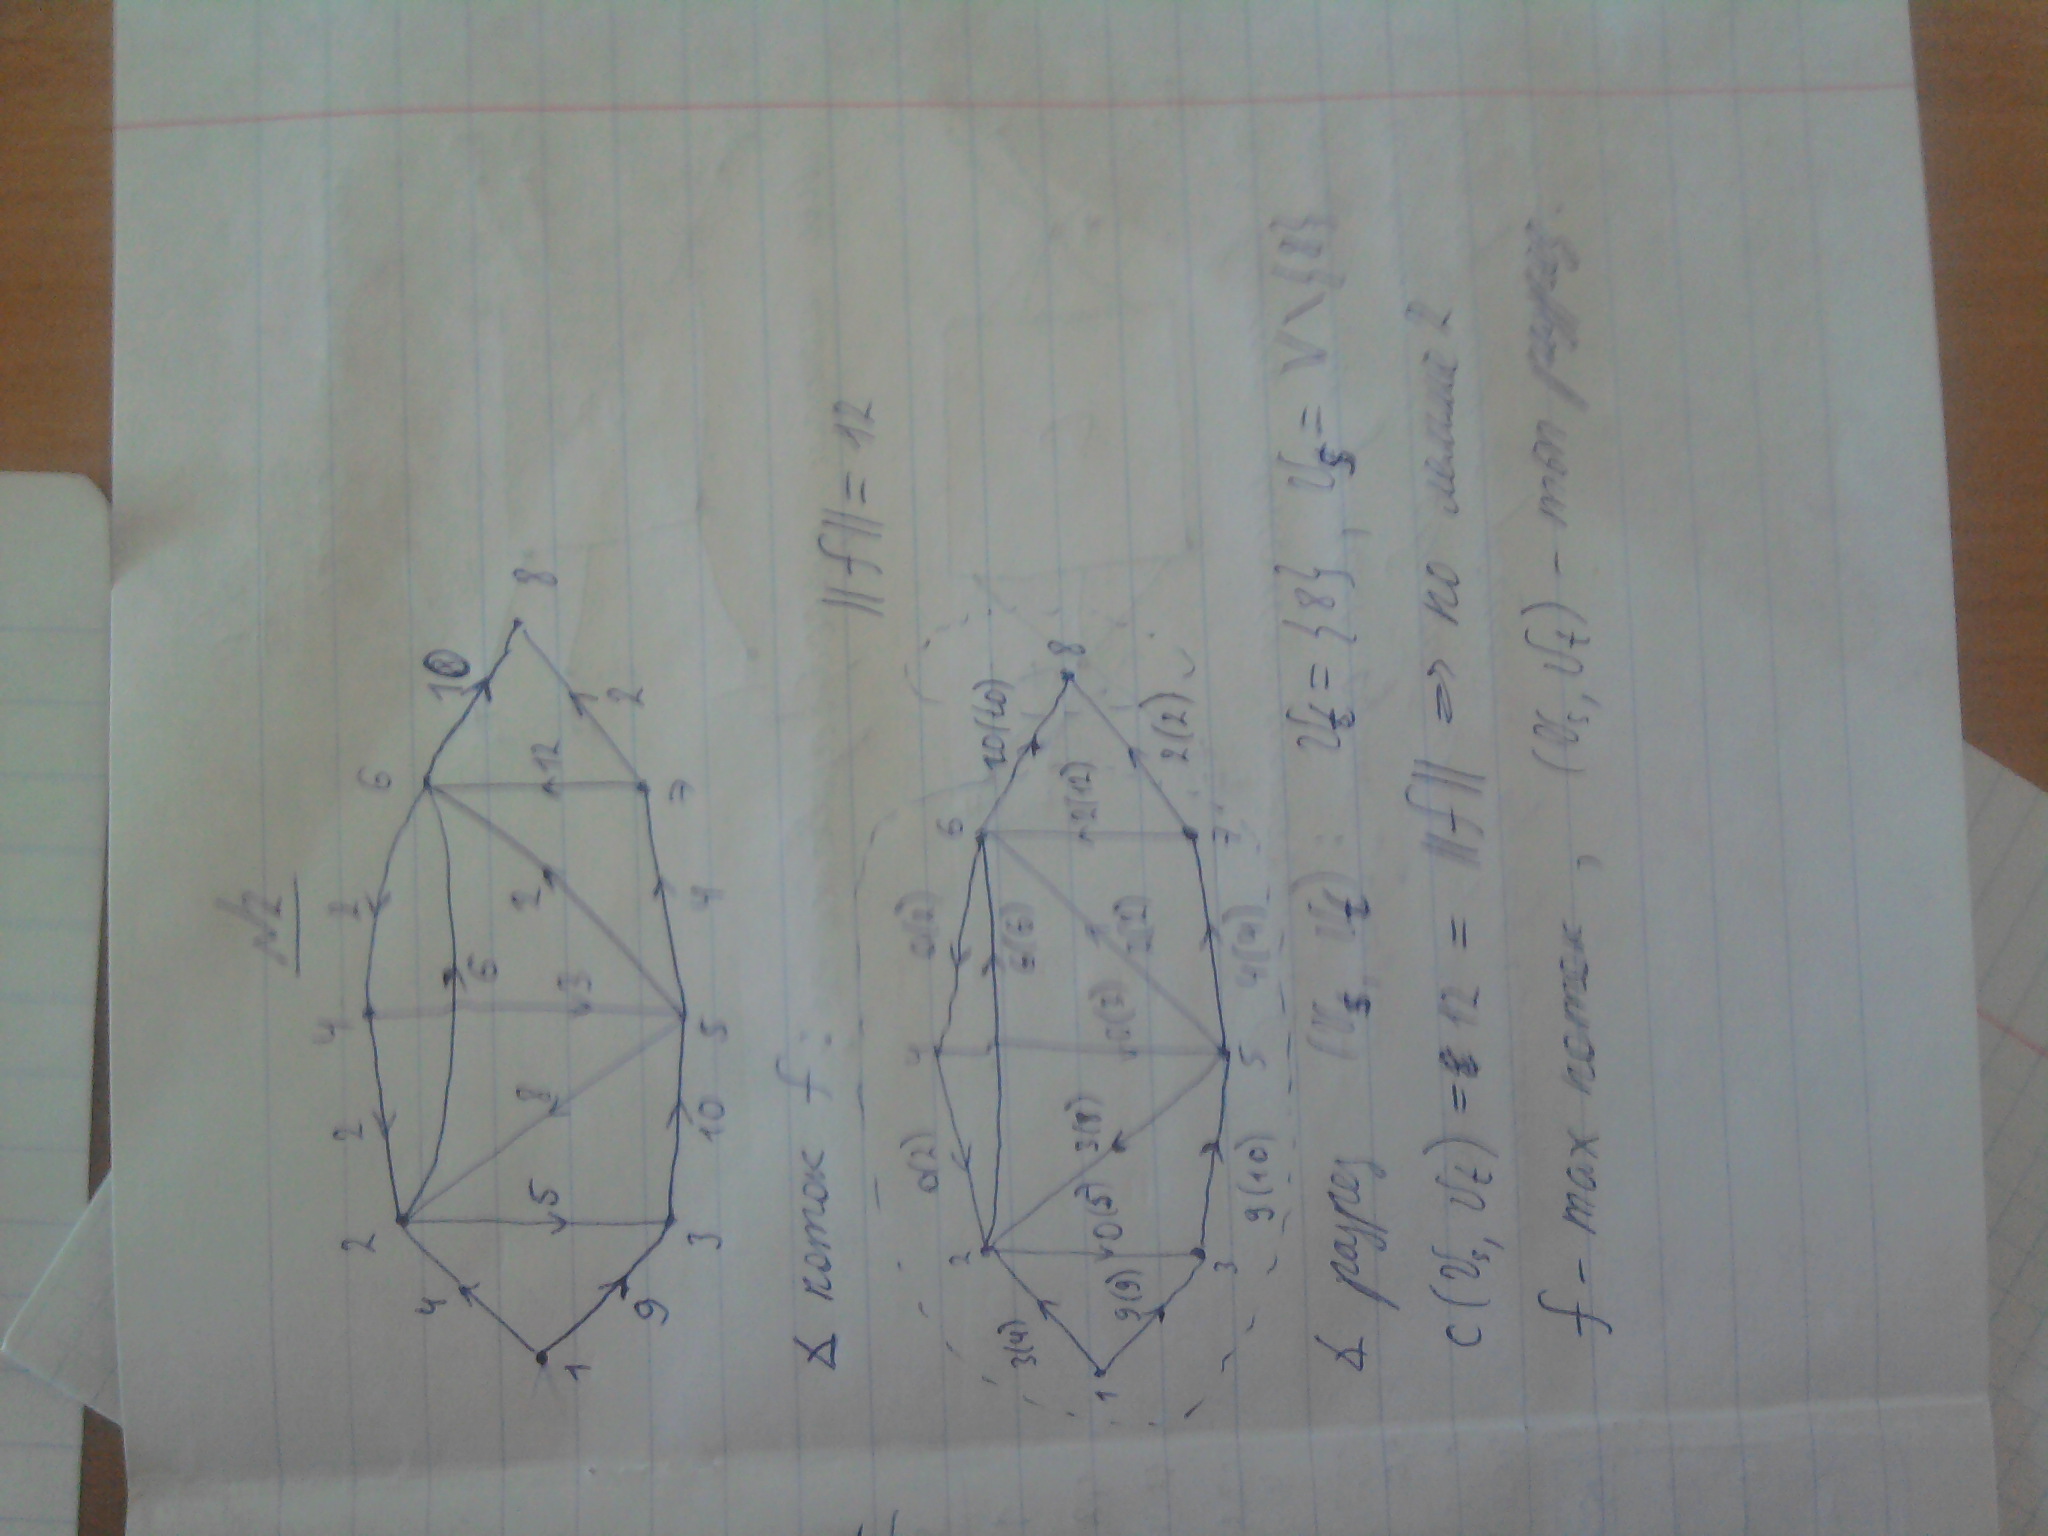 №2
1 2 3 4 5 6 7 8
4 9 5 2 8 10 6 3 2 4 12 10 2
∡ поток f: ||f|| = 12
1 2 3 4 5 6 7 8
3(4) 9(9) 0(5) 0(2) 3(8) 9(10) 6(6) 0(2) 2(2) 4(4) 2(12) 10(10) 2(2)
∡ разрез (Vs, Vt): Vt = {8}, Vs = V \ {8}
c(Vs, Vt) = 12 = ||f|| => по лемме 2
f – max поток, (Vs, Vt) – min разрез.